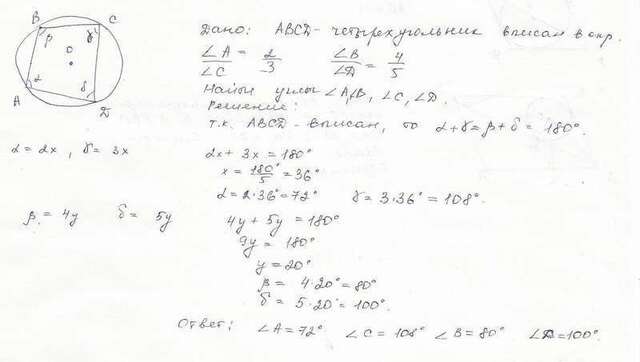 B C
β γ
O
α δ
A D
Дано: ABCD - четырехугольник вписан в окр.
∠A / ∠C = 2/3 ∠B / ∠D = 4/5
Найти углы ∠A, ∠B, ∠C, ∠D.
Решение:
Т.к. ABCD - вписан, то α+γ=β+δ = 180°.
α = 2x, γ = 3x 2x + 3x = 180°
x = 180°/5 = 36°
α = 2·36° = 72° γ = 3·36° = 108°.
β = 4y δ = 5y 4y + 5y = 180°
9y = 180°
y = 20°
β = 4·20° = 80°
δ = 5·20° = 100°.
Ответ: ∠A = 72° ∠C = 108° ∠B = 80° ∠D = 100°.